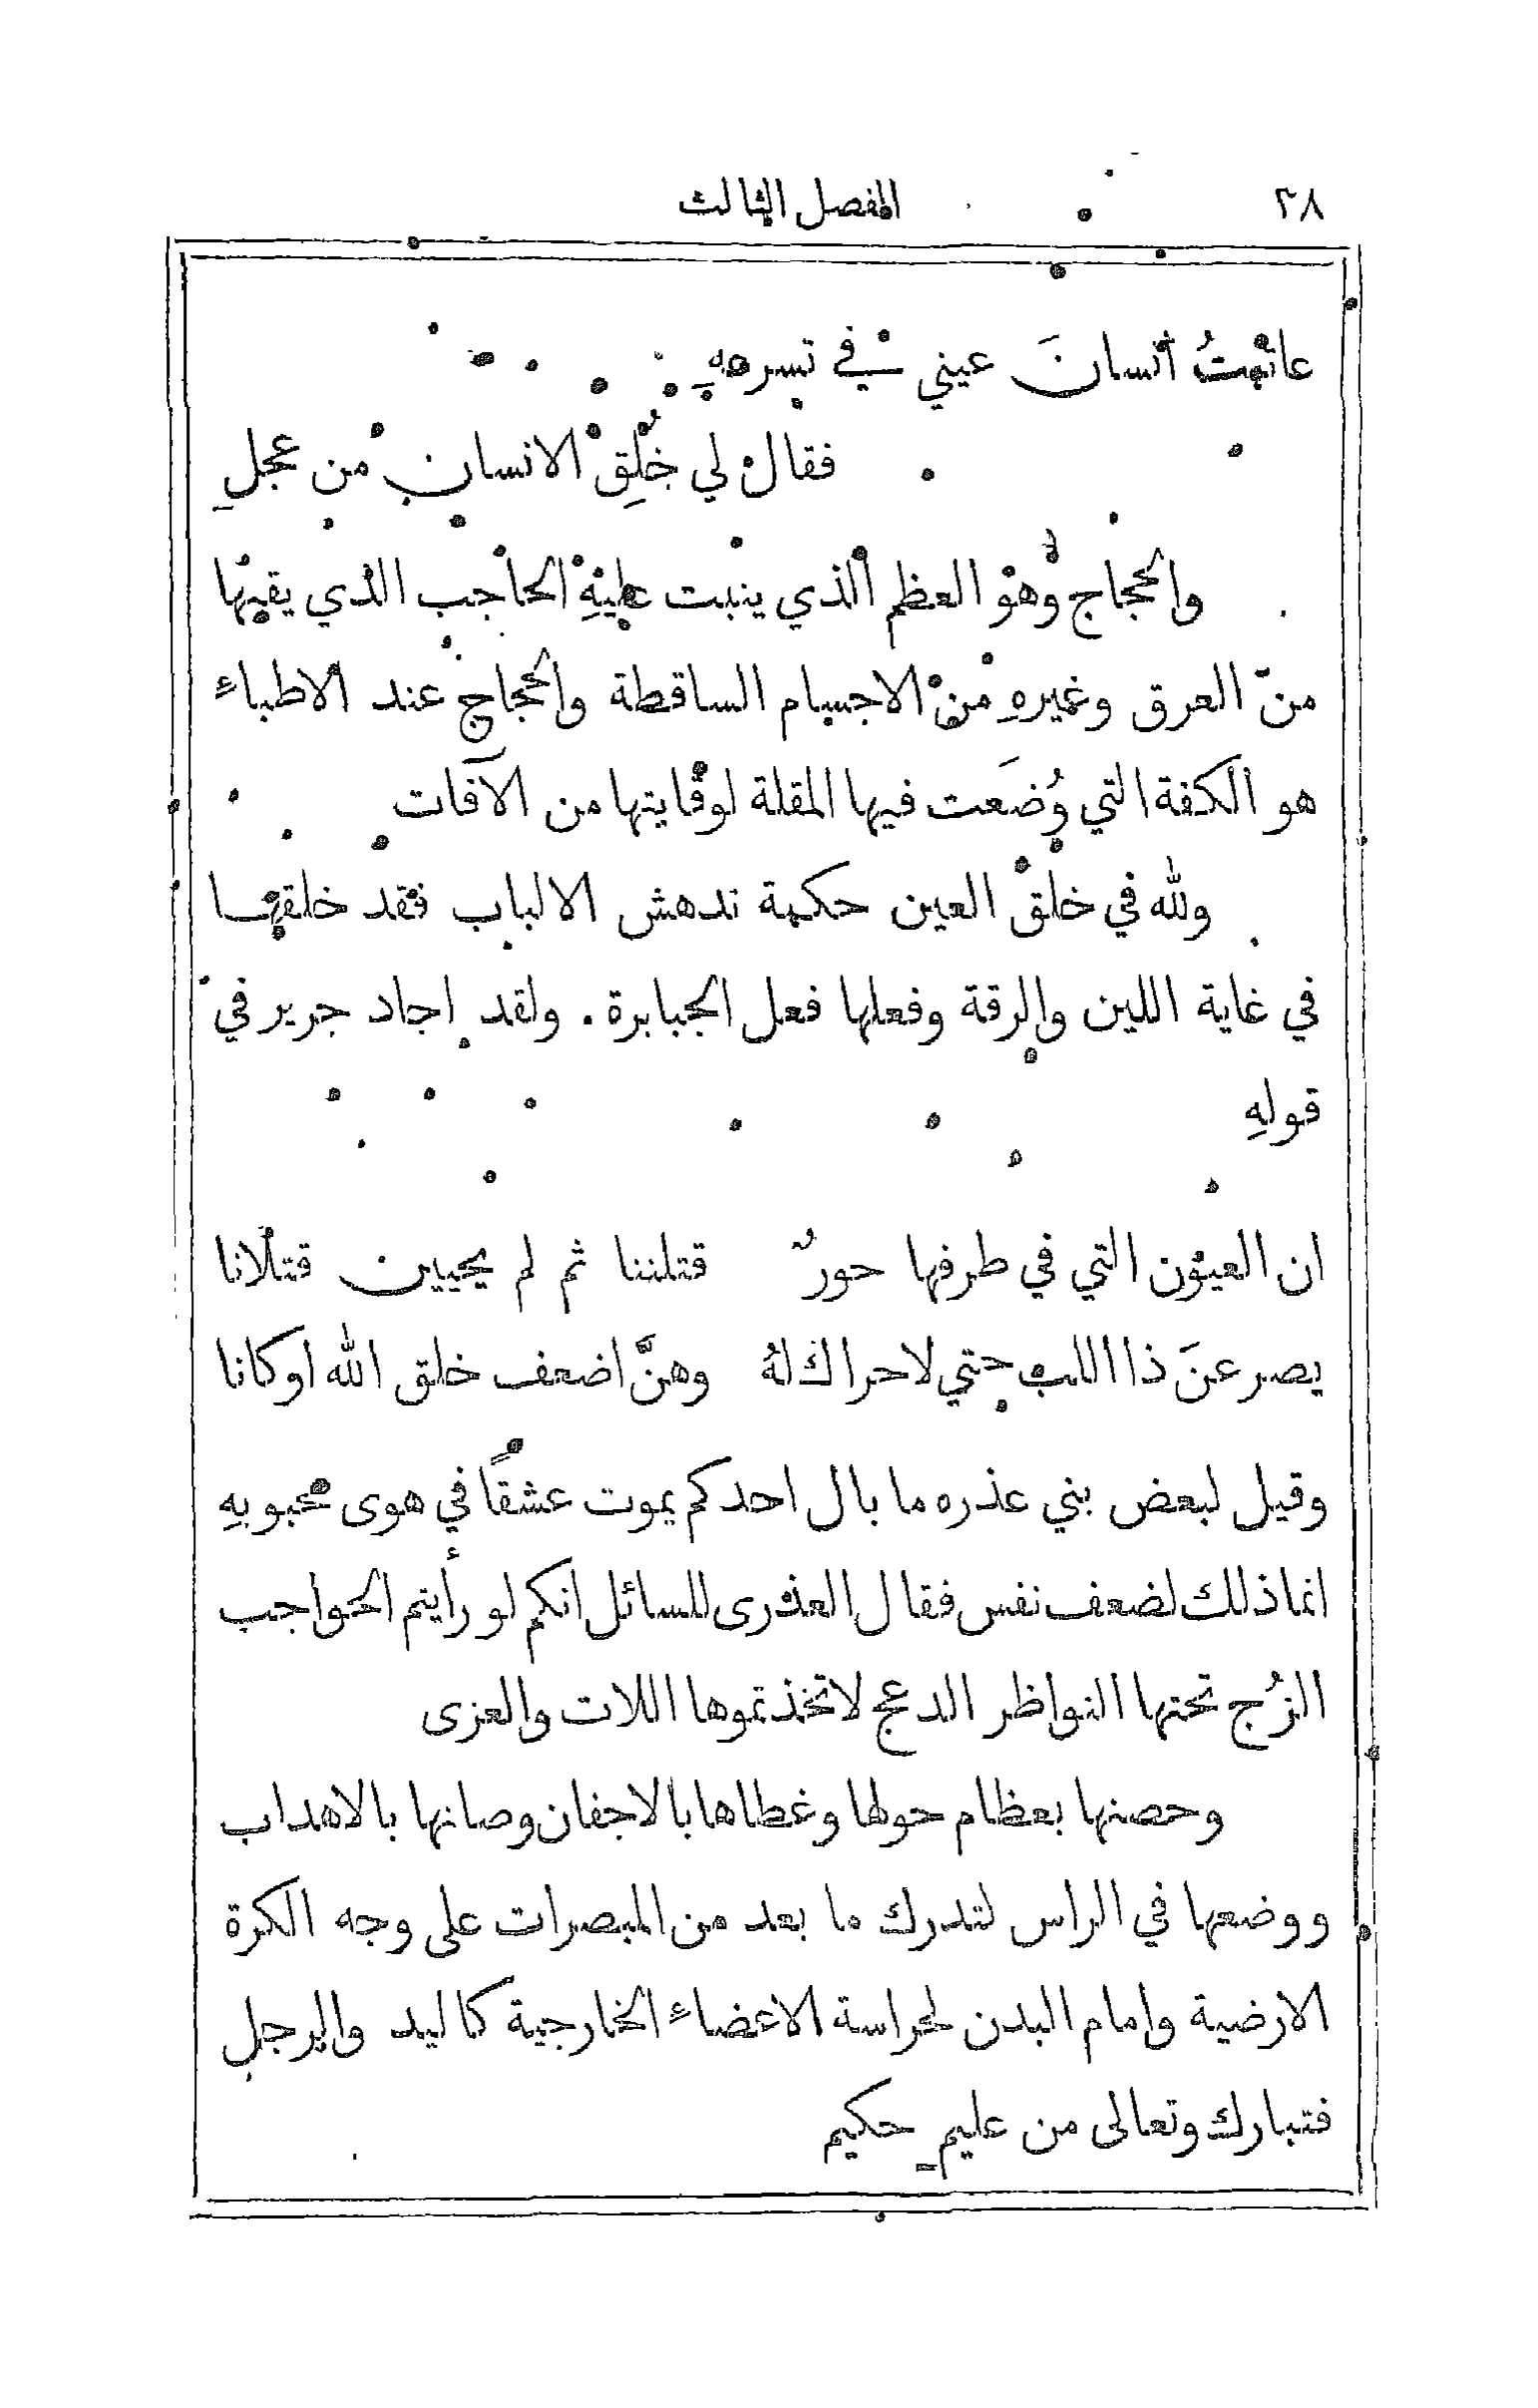 ٣٨ المفصل الثالث
عاتبتُ أنسانَ عيني في تسرعهِ
فقال لي خُلِق الانسان من عجلِ
والحجاج وهو العظم الذي ينبت عليهِ الحاجب الذي يقيها
من العرق وغيرهِ من الاجسام الساقطة والحجاج عند الاطباء
هو الكفة التي وُضَعت فيها المقلة لوقايتها من الآفات
ولله في خلق العين حكمة تدهش الالباب فقد خلقها
في غاية اللين والرقة وفعلها فعل الجبابرة. ولقد اجاد جرير في
قولهِ
ان العيون التي في طرفها حورٌ قتلننا ثم لم يحيين قتلانا
يصرعنَ ذا اللب حتي لا حراك لهُ وهنَّ اضعف خلق الله اوكانا
وقيل لبعض بني عذره ما بال احدكم يموت عشقًا في هوى محبوبهِ
انما ذلك لضعف نفس فقال العذرى للسائل انكم لو رأيتم الحواجب
الزُج تحتها النواظر الدعج لاتخذتموها اللات والعزى
وحصنها بعظام حولها وغطاها بالاجفان وصانها بالاهداب
ووضعها في الراس لتدرك ما بعد من المبصرات على وجه الكرة
الارضية وامام البدن لحراسة الاعضاء الخارجية كاليد والرجل
فتبارك وتعالى من عليمٍ حكيم